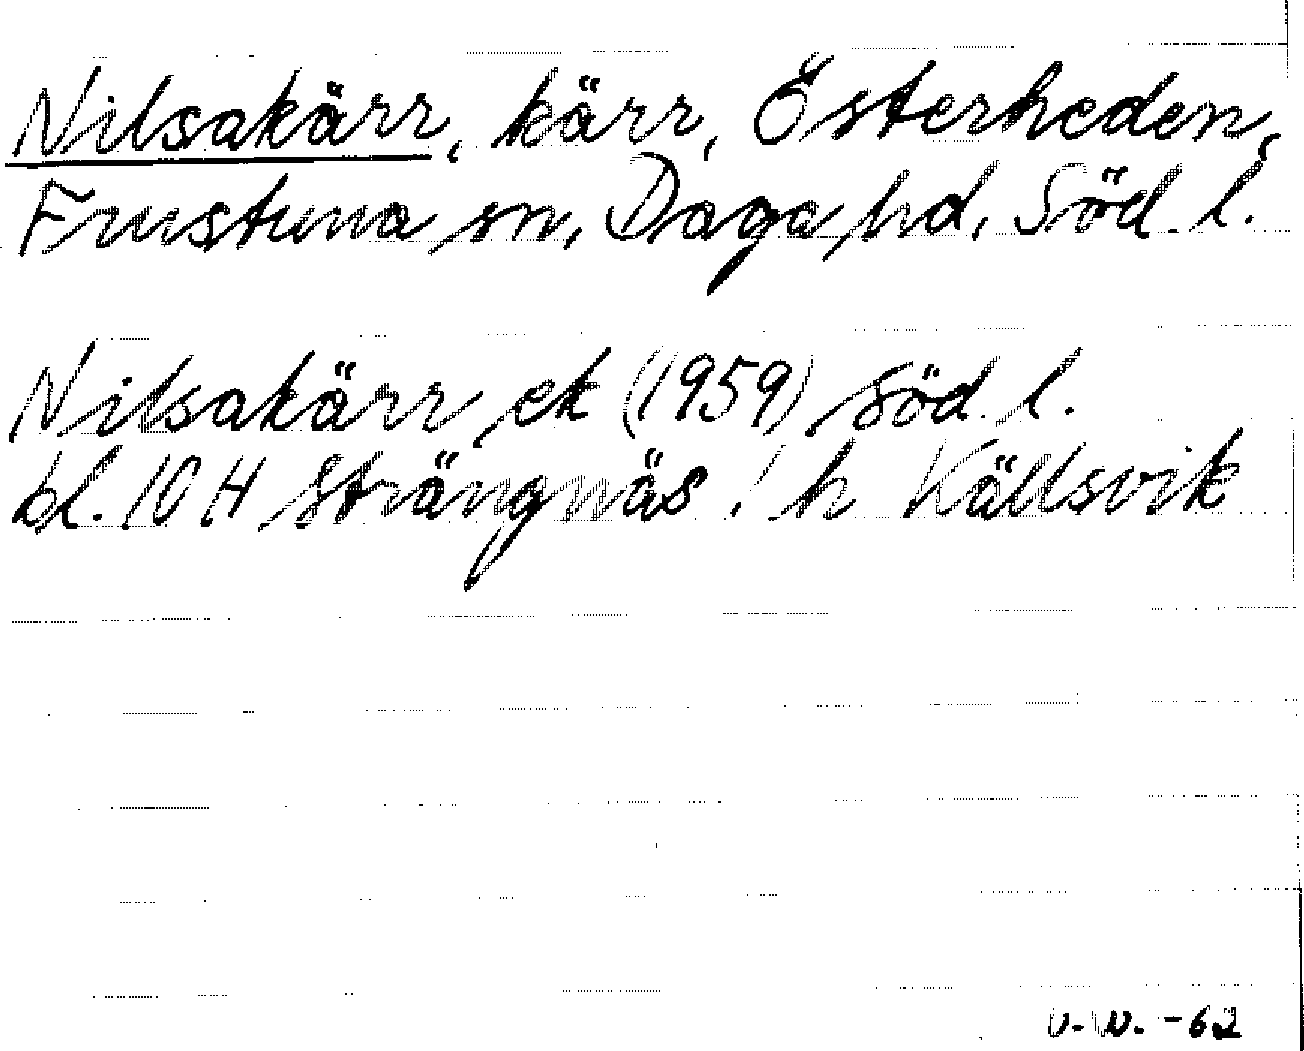 Nilsakärr, kärr, Österheden,
Frustuna sn, Daga hd, Söd. l.
Nilsakärr ek (1959) Söd. l.
bl. 10 H Strängnäs. h Källsvik
U.W. -62